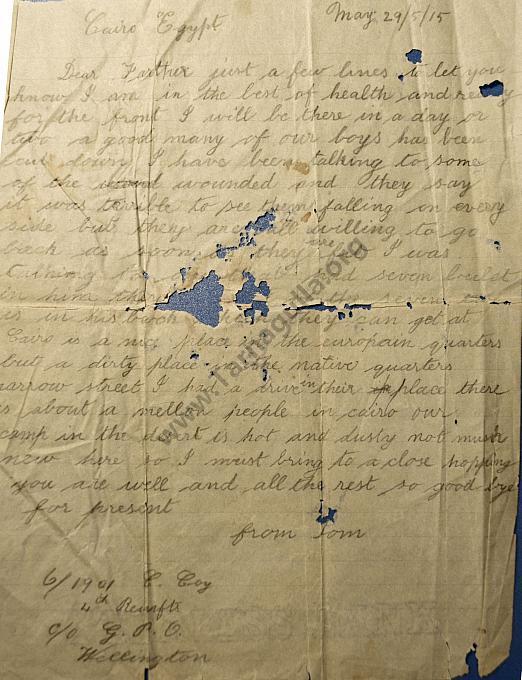 Cairo Egypt
May 29/5/15
Dear Farther just a few lines to let you
know I am in the best of health and ready
for the front I will be there in a day or
two a good many of our boys has been
cut down I have been talking to some
of the wounded and they say
it was terrible to see them falling on every
side but they are all willing to go
back as soon as there I was
talking to had seven bullet
in him the
is in his back they can get at
Cairo is a nice place in the europain quarters
but a dirty place the native quarters
narrow street I had a drive in their place there
is about a mellon people in cairo our
camp in the desert is hot and dusty not much
new here so I must bring to a close hopping
you are well and all the rest so good bye
for present
from Tom
6/1901 C. Coy
4th Reinfts
c/o G. P. O.
Wellington
www.Farnaguilla.org